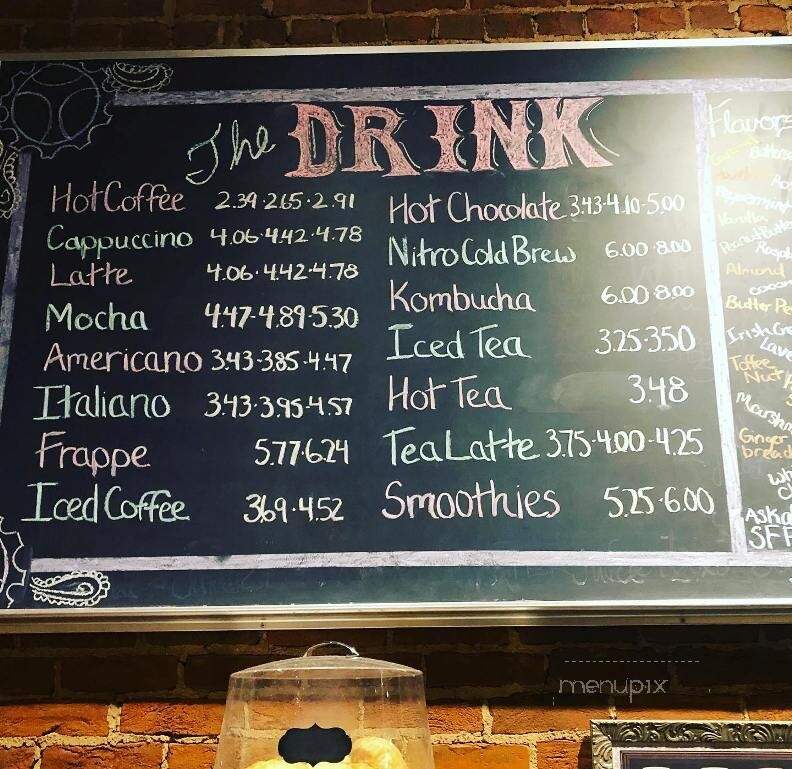 The DRINK
Hot Coffee 2.39 2.65·2.91
Cappuccino 4.06·4.42·4.78
Latte 4.06·4.42·4.78
Mocha 4.47·4.89·5.30
Americano 3.43·3.85·4.47
Italiano 3.43·3.95·4.57
Frappe 5.77·6.24
Iced Coffee 3.69·4.52
Hot Chocolate 3.43·4.10·5.00
Nitro Cold Brew 6.00·8.00
Kombucha 6.00 8.00
Iced Tea 3.25·3.50
Hot Tea 3.48
Tea Latte 3.75·4.00·4.25
Smoothies 5.25·6.00
Flavors
Peppermint
Vanilla
Peanut Butter
Almond
Butter Pe
Irish Cre
Lave
Toffee
Nut
Marshm
Ginger
bread
Wh
Ch
Ask a
SF F
menupix